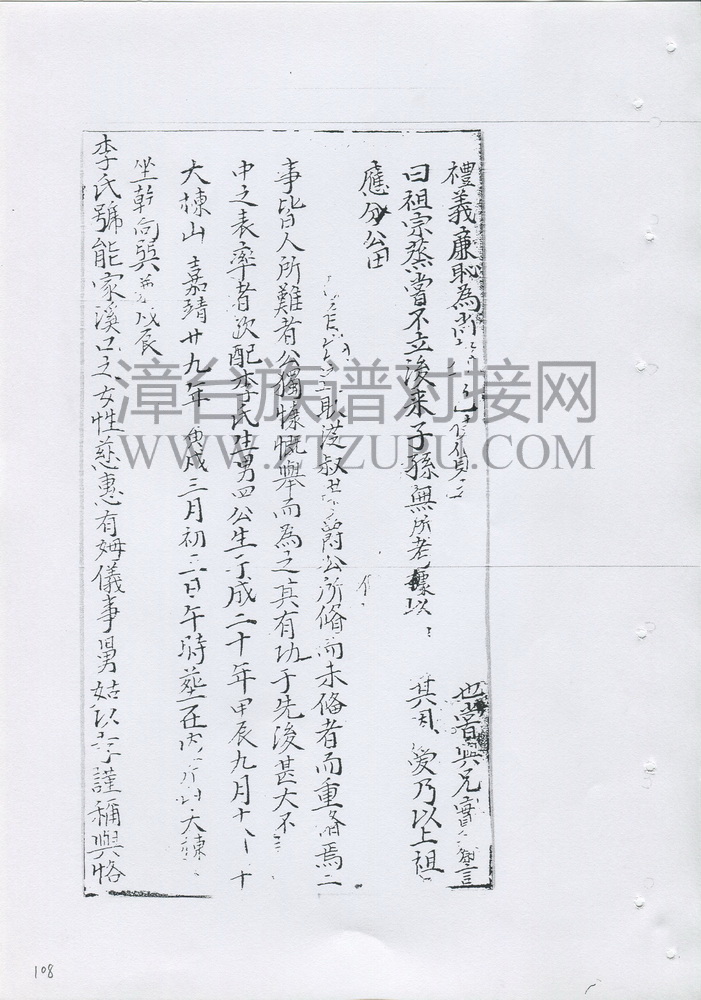 禮義廉恥為尚 也嘗與兄 言
曰祖宗蒸嘗不立後来子孫無所考據以 其 爱乃以上祖
應分公田
取從叔 爵公所脩而未脩者而重脩焉二
事皆人所難者公獨慷慨舉而為之其有功于先後甚大不
中之表率者次配李氏生男四公生于成二十年甲辰九月十 十
大棟山嘉靖廿九年庚戌三月初三日午時塟在内 大棟
坐乾向巽兼戌辰
李氏號能家溪口之女性慈惠有姆儀事舅姑以孝謹稱與恪
漳台族谱对接网
WWW.ZTZUPU.COM
108